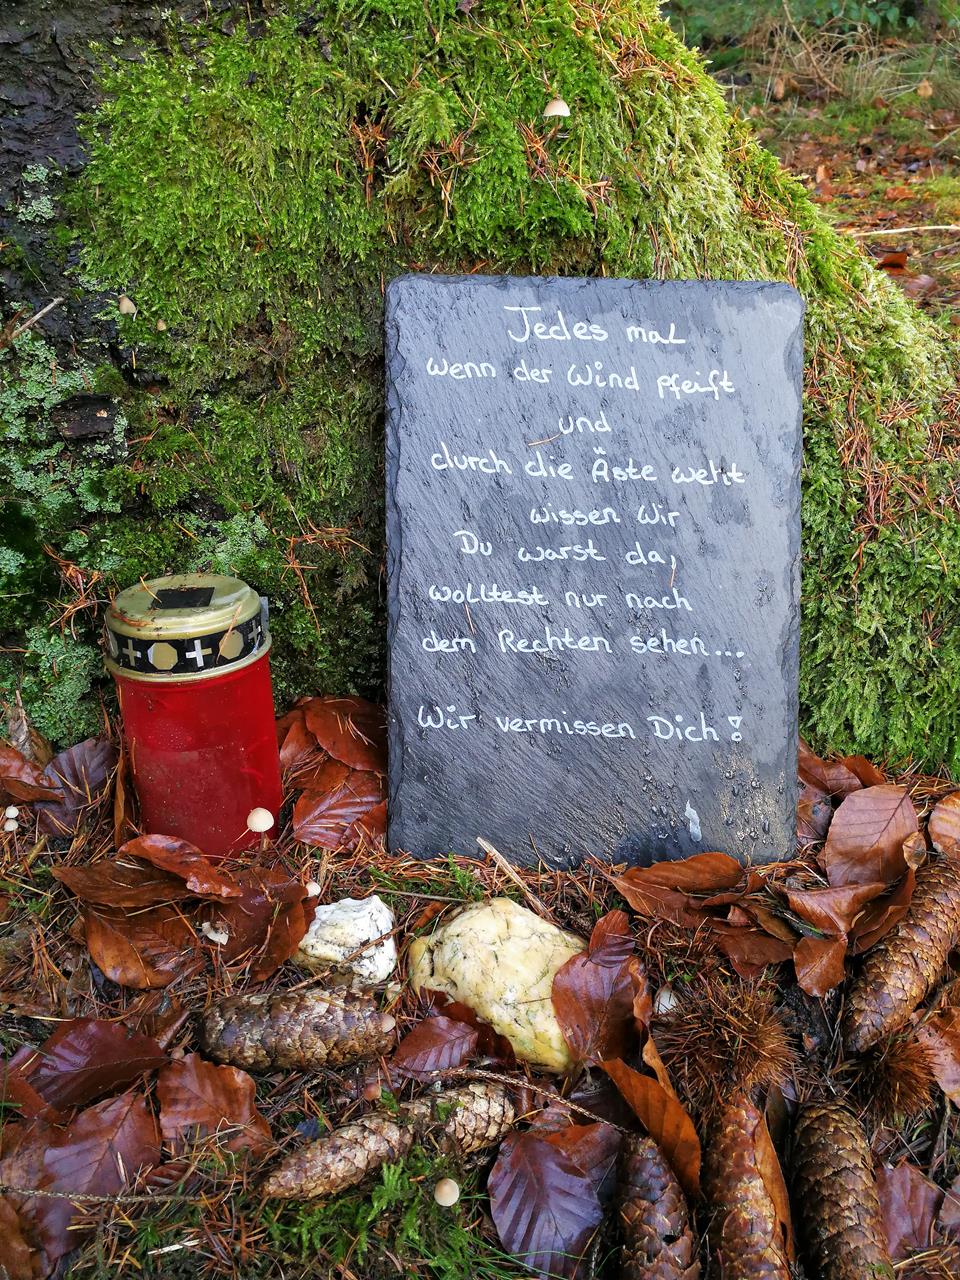 Jedes mal
wenn der Wind pfeift
und
durch die Äste weht
wissen Wir
Du warst da,
wolltest nur nach
dem Rechten sehen...
Wir vermissen Dich!